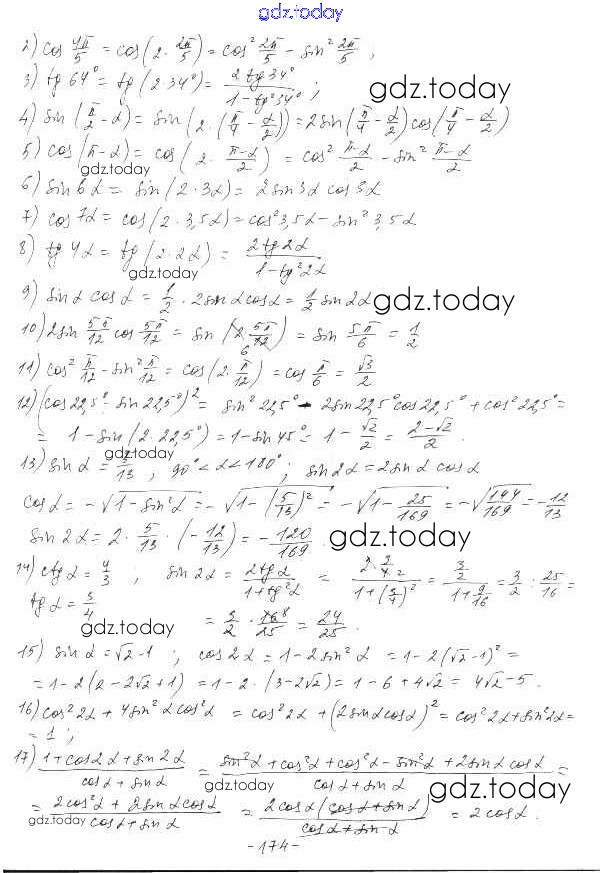 gdz.today
2) cos 4π/5 = cos(2· 2π/5) = cos² 2π/5 − sin² 2π/5 ,
3) tg 64° = tg(2·34°) = 2 tg 34° / 1 − tg² 34° ;
gdz.today
4) sin(π/2 − α) = sin(2·(π/4 − α/2)) = 2 sin(π/4 − α/2) cos(π/4 − α/2)
5) cos(π − α) = cos(2· π−α/2) = cos² π−α/2 − sin² π−α/2
gdz.today
6) sin 6α = sin(2·3α) = 2 sin 3α cos 3α
7) cos 7α = cos(2·3,5α) = cos² 3,5α − sin² 3,5α
8) tg 4α = tg(2·2α) = 2 tg 2α / 1 − tg² 2α
gdz.today
9) sin α cos α = 1/2 · 2 sin α cos α = 1/2 sin 2α
gdz.today
10) 2 sin 5π/12 cos 5π/12 = sin(2 5π/12) = sin 5π/6 = 1/2
11) cos² π/12 − sin² π/12 = cos(2· π/12) = cos π/6 = √3/2
12) (cos 22,5° − sin 22,5°)² = sin² 22,5° − 2 sin 22,5° cos 22,5° + cos² 22,5° =
= 1 − sin(2·22,5°) = 1 − sin 45° = 1 − √2/2 = 2−√2/2 .
gdz.today
13) sin α = 5/13 , 90° < α < 180° ; sin 2α = 2 sin α cos α
cos α = −√(1 − sin² α) = −√(1 − (5/13)²) = −√(1 − 25/169) = −√(144/169) = −12/13
sin 2α = 2 · 5/13 · (−12/13) = −120/169 .
gdz.today
14) ctg α = 4/3 ; sin 2α = 2 tg α / 1 + tg² α = 2·3/4 / 1 + (3/4)² = 3/2 / 1 + 9/16 = 3/2 : 25/16 =
tg α = 3/4 = 3/2 · 16 8/25 = 24/25 .
gdz.today
15) sin α = √2 − 1 ; cos 2α = 1 − 2 sin² α = 1 − 2(√2 − 1)² =
= 1 − 2(2 − 2√2 + 1) = 1 − 2·(3 − 2√2) = 1 − 6 + 4√2 = 4√2 − 5 .
16) cos² 2α + 4 sin² α cos² α = cos² 2α + (2 sin α cos α)² = cos² 2α + sin² 2α =
= 1 ;
17) 1 + cos 2α + sin 2α / cos α + sin α = sin² α + cos² α + cos² α − sin² α + 2 sin α cos α / cos α + sin α =
gdz.today
= 2 cos² α + 2 sin α cos α / cos α + sin α = 2 cos α (cos α + sin α) / cos α + sin α = 2 cos α .
gdz.today
gdz.today
-174-